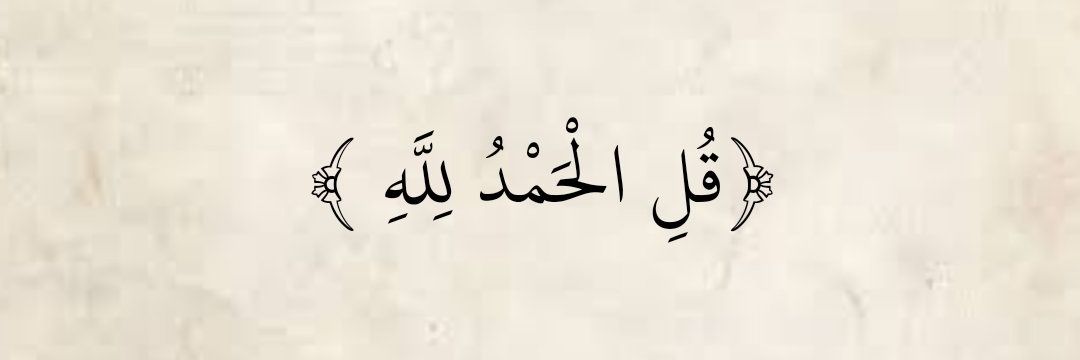 ﴿قُلِ الْحَمْدُ لِلَّهِ ﴾